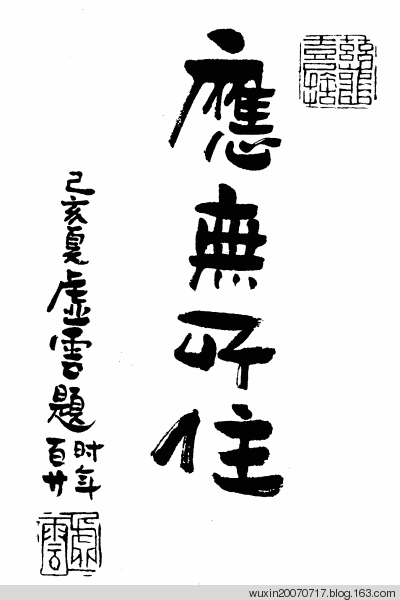 慈悲
喜捨
應無所住
己亥夏虛雲題
时年
百廿
虛
雲
wuxin20070717.blog.163.com